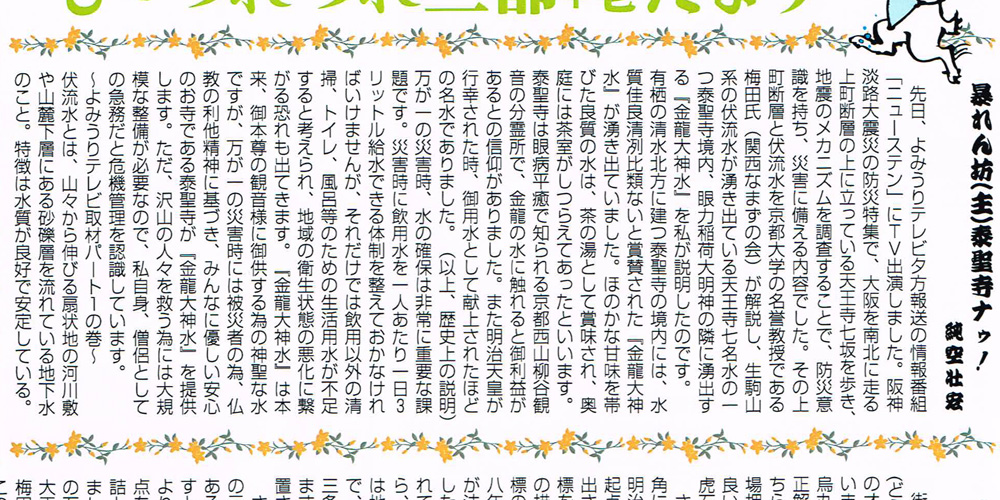 暴れん坊(主)泰聖寺ナゥ!
純空壮宏
先日、よみうりテレビ夕方報送の情報番組
「ニューステン」にTV出演しました。阪神
淡路大震災の防災特集で、大阪を南北に走る
上町断層の上に立っている天王寺七坂を歩き、
地震のメカニズムを調査することで、防災意
識を持ち、災害に備える内容でした。その上
町断層と伏流水を京都大学の名誉教授である
梅田氏(関西なまずの会)が解説し、生駒山
系の伏流水が湧き出ている天王寺七名水の一
つ泰聖寺境内、眼力稲荷大明神の隣に湧出す
る『金龍大神水』を私が説明したのです。
有栖の清水北方に建つ泰聖寺の境内には、水
質佳良清冽比類ないと賞賛された『金龍大神
水』が湧き出ていました。ほのかな甘味を帯
びた良質の水は、茶の湯として賞味され、奥
庭には茶室がしつらえてあったといいます。
泰聖寺は眼病平癒で知られる京都西山柳谷観
音の分霊所で、金龍の水に触れると御利益が
あるとの信仰がありました。また明治天皇が
行幸された時、御用水として献上されたほど
の名水でありました。(以上、歴史上の説明)
万が一の災害時、水の確保は非常に重要な課
題です。災害時に飲用水を一人あたり一日3
リットル給水できる体制を整えておかなけれ
ばいけませんが、それだけでは飲用以外の清
掃、トイレ、風呂等のための生活用水が不足
すると考えられ、地域の衛生状態の悪化に繋
がる恐れも出てきます。『金龍大神水』は本
来、御本尊の観音様に御供する為の神聖な水
ですが、万が一の災害時には被災者の為、仏
教の利他精神に基づき、みんなに優しい安心
のお寺である泰聖寺が『金龍大神水』を提供
します。ただ、沢山の人々を救う為には大規
模な整備が必要なので、私自身、僧侶として
の急務だと危機管理を認識しています。
〜よみうりテレビ取材パート1の巻〜
伏流水とは、山々から伸びる扇状地の河川敷
や山麓下層にある砂礫層を流れている地下水
のこと。特徴は水質が良好で安定している。